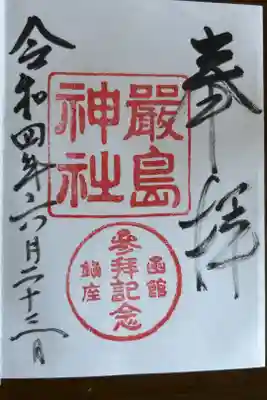 奉拝
嚴島
神社
函館
參拜記念
鎮座
令和四年六月二十三日